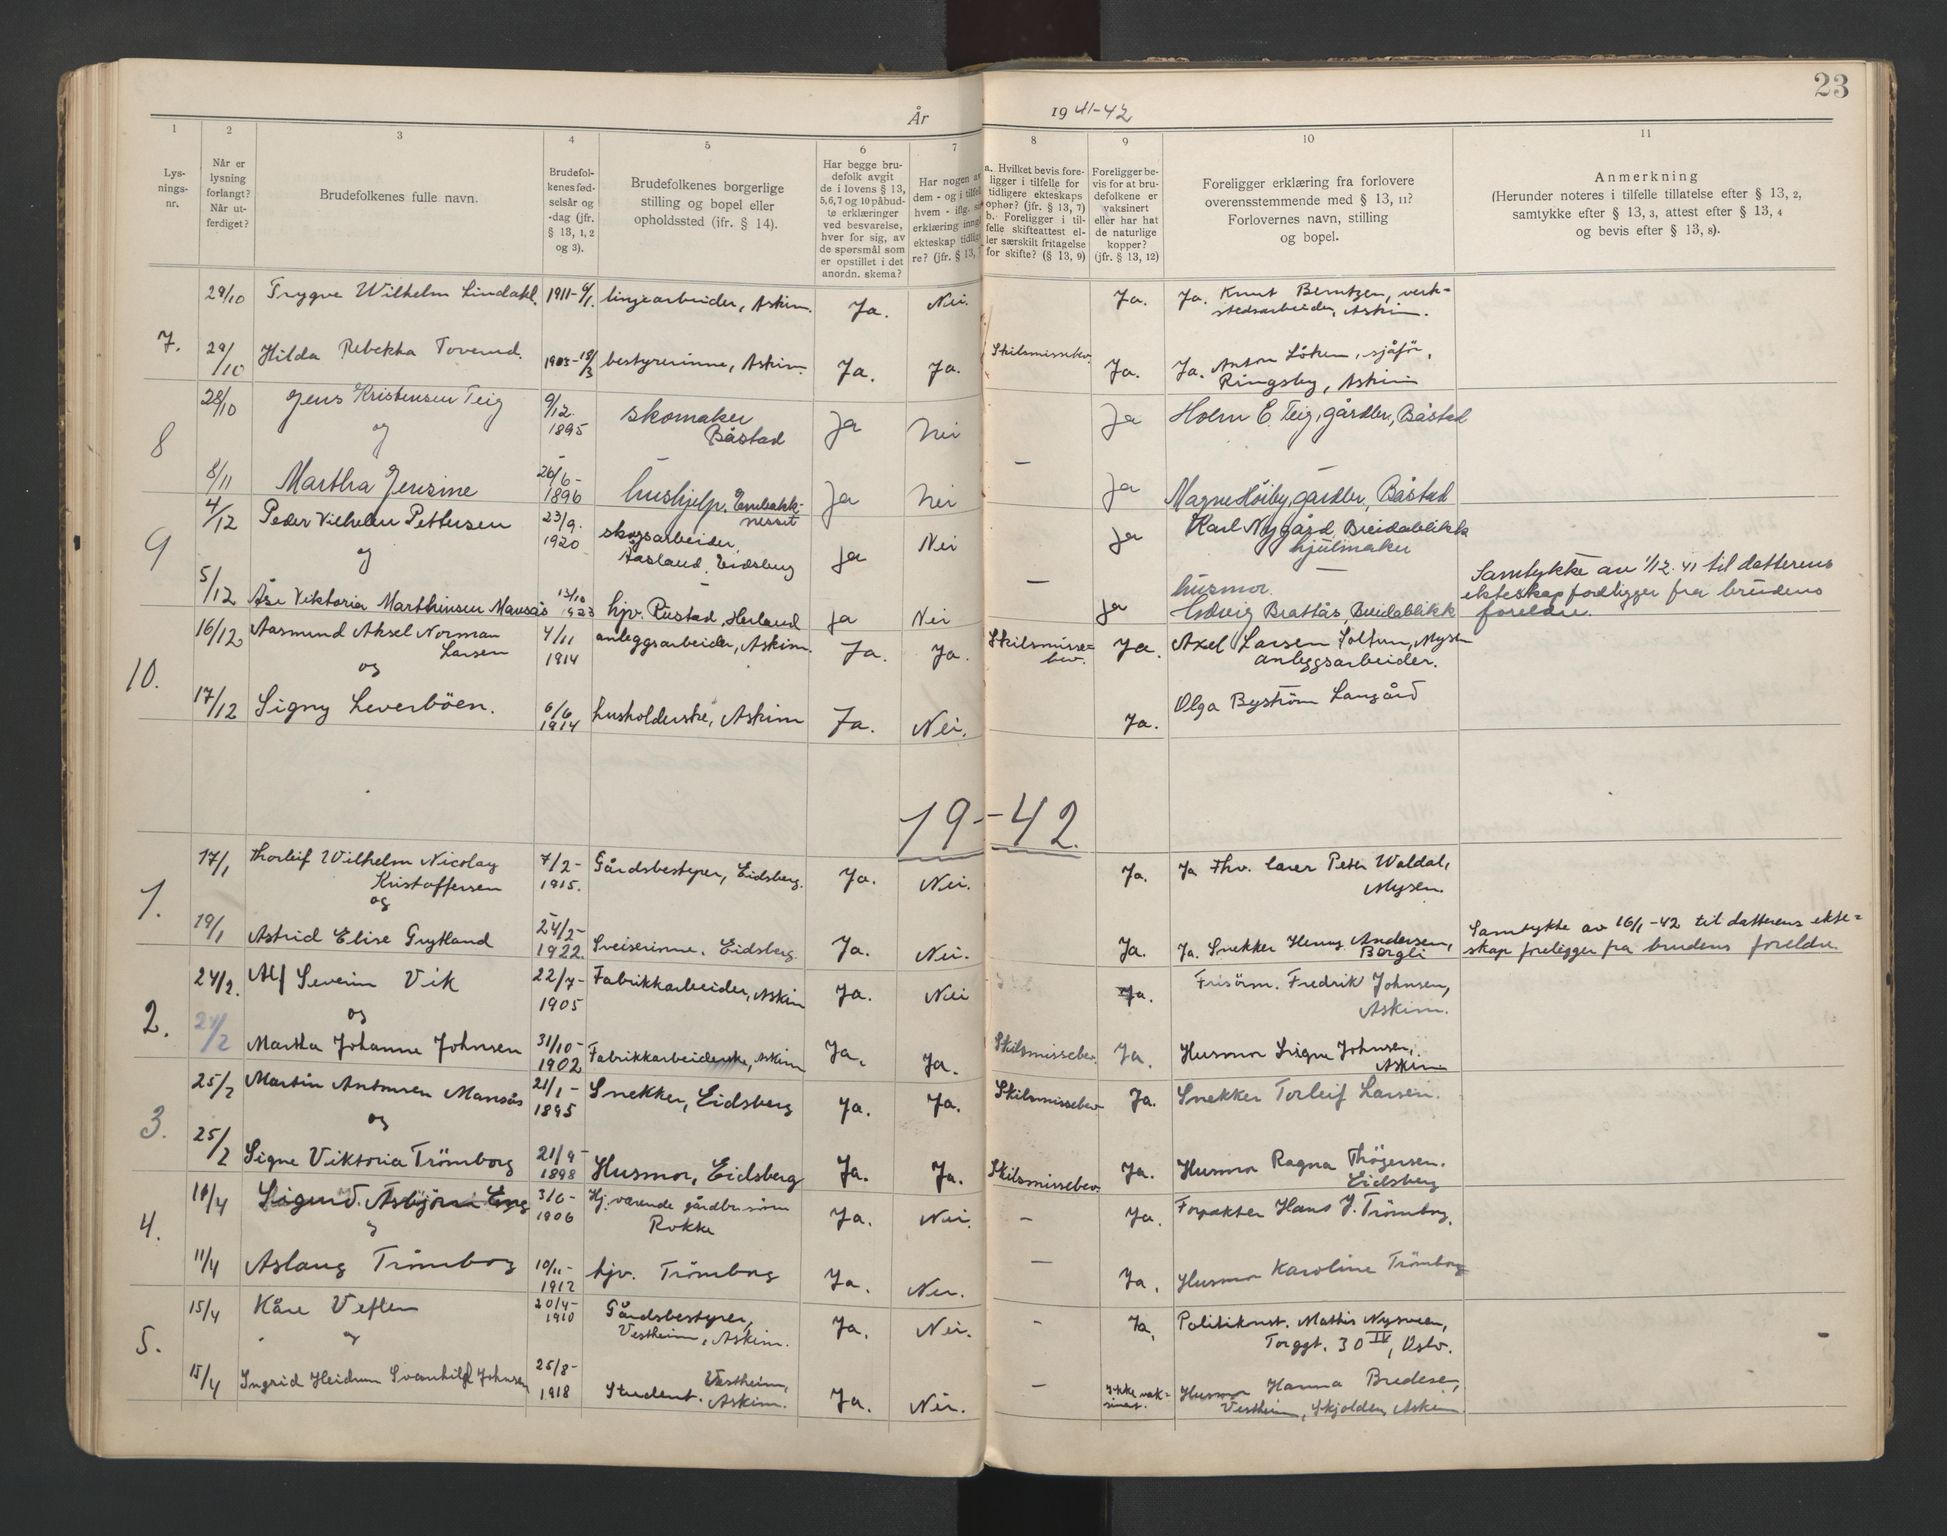 23
År
19 41-42
1
2
3
4
5
6
7
8
9
10
11
Lys-
nings-
nr.
Når er
lysning
forlangt?
Når ut-
ferdiget?
Brudefolkenes fulle navn.
Brudefol-
kenes fød-
selsår og
-dag (jfr.
§ 13, 1, 2
og 3).
Brudefolkenes borgerlige
stilling og bopel eller
opholdssted (ifr. § 14).
Har begge bru-
defolk avgit
de i lovens § 13,
5, 6, 7 og 10 påbud-
te erklæringer
ved besvarelse,
hver for sig, av
de spørsmål som
er opstillet i det
anordn. skema?
Har nogen av
dem - og i tilfel
hvem - iflg. si
erklæring inng
ekteskap tidlig
re? (jfr. § 13,
a. Hvilket bevis fore-
ligger i tilfelle for
tidligere ekteskaps
ophør? (jfr. § 13, 7)
b. Foreligger i til-
felle skifteattest el-
ler særskilt fritagelse
for skifte? (§ 13, 9)
Foreligger be-
vis for at bru-
defolkene er
vaksinert
eller har hat
de naturlige
kopper?
(jfr. § 13, 12)
Foreligger erklæring fra forlovere
overensstemmende med § 13, 11?
Forlovernes navn, stilling
og bopel.
Anmerkning
(Herunder noteres i tilfelle tillatelse efter § 13, 2,
samtykke efter § 13, 3, attest efter § 13, 4
og bevis efter § 13, 8).
29/10 Trygve Wilhelm Lindahl. 1911-6/1. linjearbeider, Askim. Ja. Nei. Ja. Ja. Knut Berntzen, verk-
stedsarbeider, Askim.
7. 29/10 Hilda Rebekka Toverud. 1903-18/3 bestyrerinne, Askim. Ja. Ja. Skilsmissebev. Ja. Ja. Anton Löken, sjåfør,
Ringsby, Askim
28/10 Jens Kristensen Teig 9/12. 1895 skomaker Båstad Ja Nei Ja Holm E. Teig, gårdbr, Båstad
8 og
8/11 Martha Jensine 26/6- 1896 hushjelp. Enebakk-
nesset Ja Nei — Ja Magne Höiby, gårdbr, Båstad
4/12 Peder Vilhelm Pettersen 23/9. 1920 skogsarbeider,
Aasland, Eidsberg Ja Nei Ja Karl Nygård, Breidablikk
hjulmaker
9 og
5/12 Åse Viktoria Marthinsen Mansås 13/10 1923 hjv. Rustad, Herland Ja Nei — Ja husmor
Ludvig Brattås, Breidablikk
Samtykke av 1/12.41 til datterens
ekteskap foreligger fra brudens
foreldre.
16/12 Aasmund Aksel Norman
Larsen 4/11 1914 anleggsarbeider, Askim. Ja. Ja. Skilsmisse-
bev. Ja. Axel Larsen Solfun, Mysen
anleggsarbeider.
10. og
17/12 Signy Leverböen. 6/6 1914 husholderske, Askim Ja. Nei. Ja. Olga Byström Langård
19-42.
17/1 Thorleif Wilhelm Nicolay
Kristoffersen 7/2- 1915. Gårdsbestyrer, Eidsberg. Ja. Nei. Ja. Ja Fhv. lærer Peter Waldal,
Mysen.
1. og
19/1 Astrid Elise Grytland 24/2- 1922. Sveiserinne. Eidsberg. Ja. Nei. Ja. Ja. Snekker Henry Andersen,
Borgli
Samtykke av 16/1-42 til datterens ekte-
skap foreligger fra brudens foreldre
24/2. Alf Severin Vik 22/7- 1905 Fabrikkarbeider, Askim Ja. Nei Ja. Frisörm. Fredrik Johnsen,
Askim.
2. og
24/2 Martha Johanne Johnsen 31/10- 1902 Fabrikkarbeiderske, Askim Ja. Ja. Skilsmissebev. Ja. Husmor Signe Johnsen,
Askim
25/2 Martin Antonsen Mansås 21/1- 1895 Snekker, Eidsberg Ja. Ja. Skilsmissebev Ja. Snekker Torleif Larsen.
3. og
25/2 Signe Viktoria Trömborg 21/9- 1898 Husmor, Eidsberg Ja. Ja. Skilsmissebev. Ja. Husmor Ragna Thögersen.
Eidsberg
10/4 Sigurd Asbjörn Eng 3/6- 1906 Hj. værende gårdbr.sönn
Rokke Ja. Nei. — Ja. Forpakter Hans J. Trömborg.
4. og
11/4 Aslaug Trömborg 10/11- 1912 hjv. Trömborg Ja. Nei. — Ja. Husmor Karoline Trömborg
15/4 Kåre Veflen 20/4- 1910 Gårdsbestyrer,
Vestheim, Askim. Ja. Nei. — Ja. Politikonst. Mathis Nysveen,
Torggt. 30 IV, Oslo.
5. og
15/4 Ingrid Heidrun Svanhild Johnsen 25/8- 1918 Student. Vestheim,
Askim. Ja. Nei. — Ikke vak-
sinert. Husmor Hanna Bredesen,
Vestheim, Skjolden, Askim.